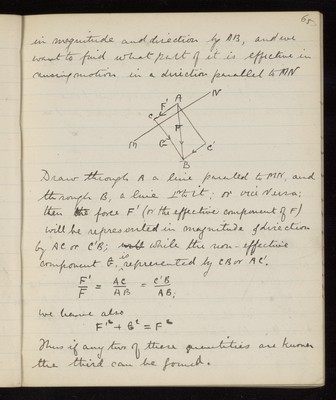 65
in magnitude and direction by AB, and we
want to find what part of it is effective in
causing motion in a direction parallel to MN
N
A
F'
C
F
G
M
C'
B
Draw through A a line parallel to MN, and
through B, a line ⊥r to it; or vice versa;
then the force F' (or the effective component of F)
will be represented in magnitude & direction
by AC or C'B; while the non-effective
component G. is represented by CB or AC'.
F'/F = AC/AB = C'B/AB;
we hence also
F'² + G² = F²
Thus if any two of these quantities are known
the third can be found.